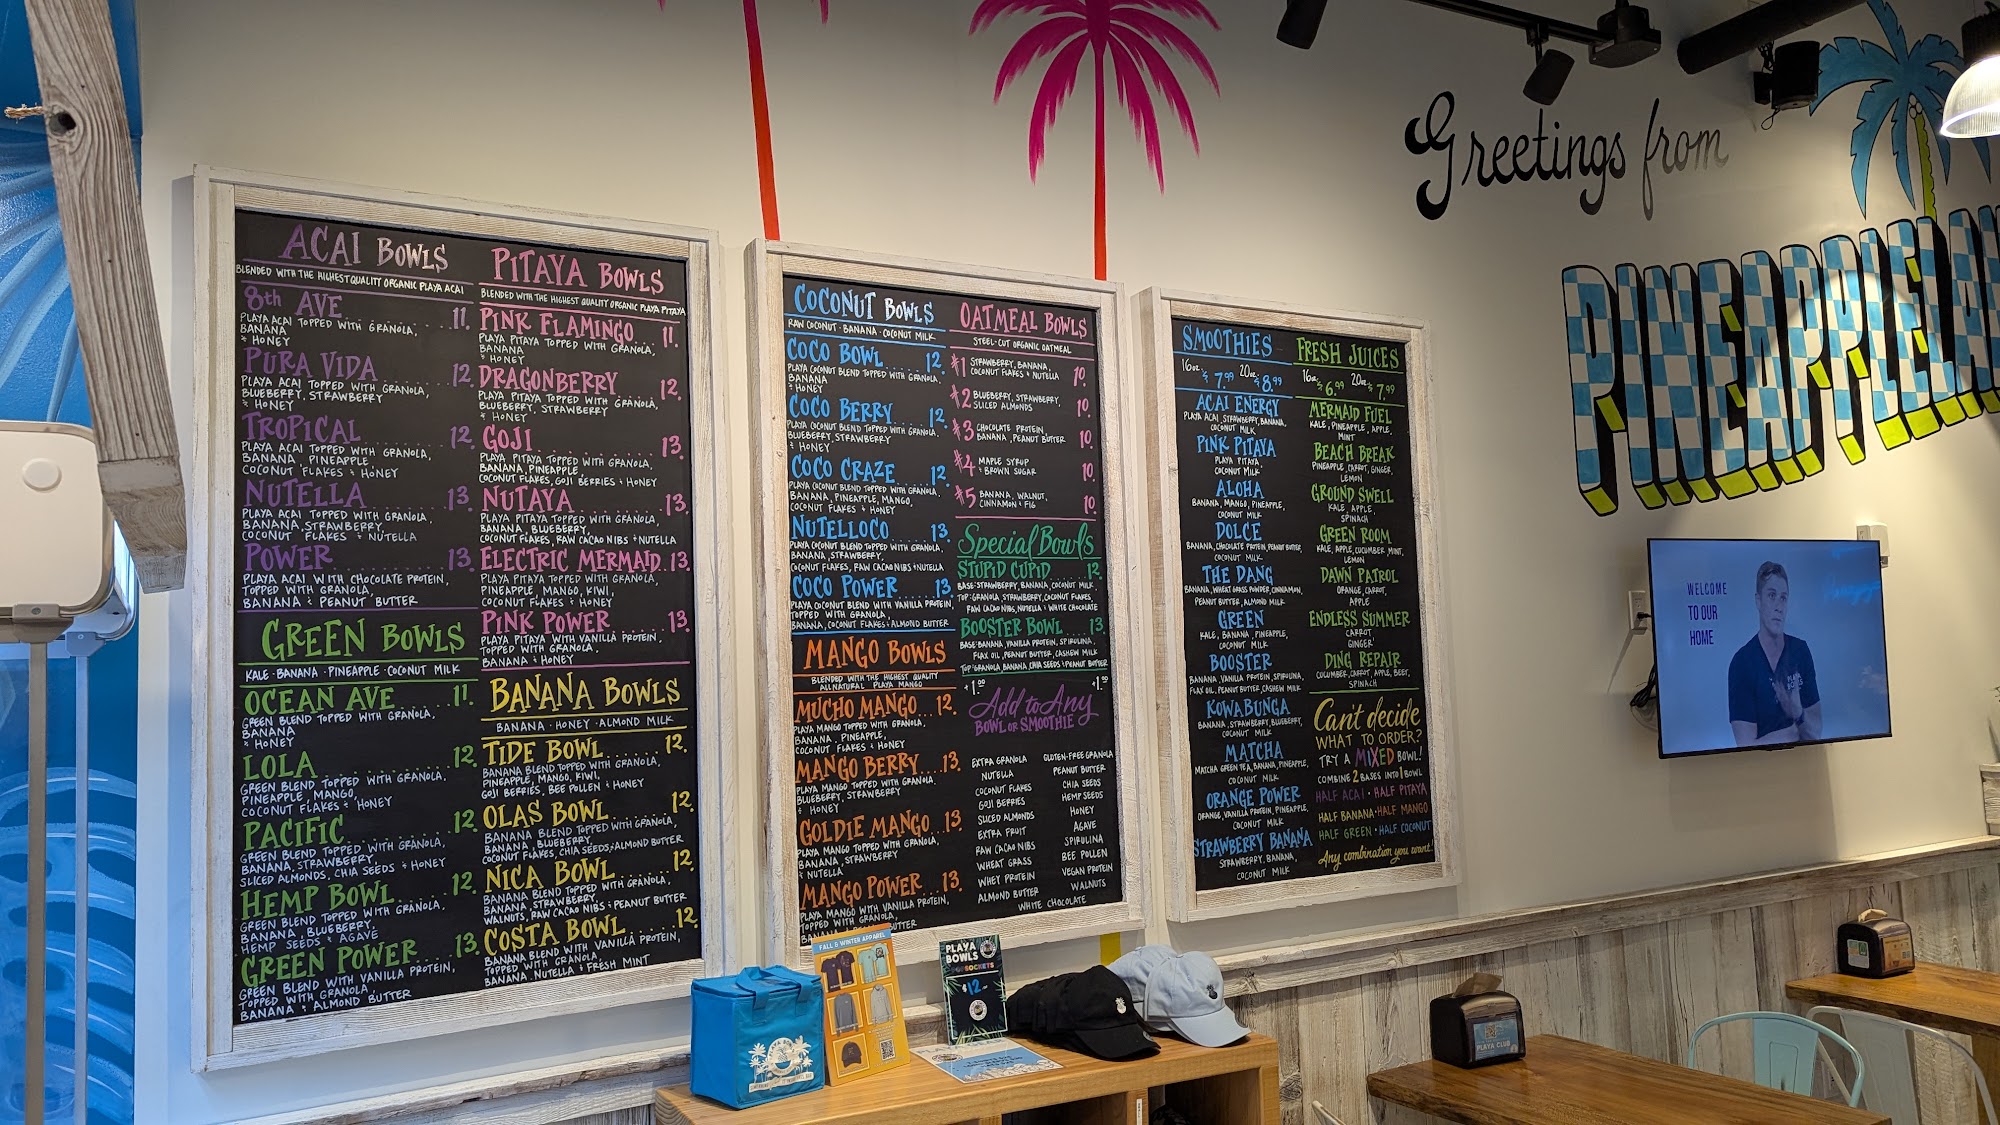 ACAI BOWLS
BLENDED WITH THE HIGHEST QUALITY ORGANIC PLAYA ACAI
8th AVE 11.
PLAYA ACAI TOPPED WITH GRANOLA,
BANANA
& HONEY
PURA VIDA 12.
PLAYA ACAI TOPPED WITH GRANOLA,
BLUEBERRY, STRAWBERRY
& HONEY
TROPICAL 12.
PLAYA ACAI TOPPED WITH GRANOLA,
BANANA, PINEAPPLE,
COCONUT FLAKES & HONEY
NUTELLA 13.
PLAYA ACAI TOPPED WITH GRANOLA,
BANANA, STRAWBERRY,
COCONUT FLAKES & NUTELLA
POWER 13.
PLAYA ACAI WITH CHOCOLATE PROTEIN,
TOPPED WITH GRANOLA,
BANANA & PEANUT BUTTER
GREEN BOWLS
KALE · BANANA · PINEAPPLE · COCONUT MILK
OCEAN AVE 11.
GREEN BLEND TOPPED WITH GRANOLA,
BANANA
& HONEY
LOLA 12.
GREEN BLEND TOPPED WITH GRANOLA,
PINEAPPLE, MANGO,
COCONUT FLAKES & HONEY
PACIFIC 12.
GREEN BLEND TOPPED WITH GRANOLA,
BANANA, STRAWBERRY,
SLICED ALMONDS, CHIA SEEDS & HONEY
HEMP BOWL 12.
GREEN BLEND TOPPED WITH GRANOLA,
BANANA, BLUEBERRY,
HEMP SEEDS & AGAVE
GREEN POWER 13.
GREEN BLEND WITH VANILLA PROTEIN,
TOPPED WITH GRANOLA,
BANANA & ALMOND BUTTER
PITAYA BOWLS
BLENDED WITH THE HIGHEST QUALITY ORGANIC PLAYA PITAYA
PINK FLAMINGO 11.
PLAYA PITAYA TOPPED WITH GRANOLA,
BANANA
& HONEY
DRAGONBERRY 12.
PLAYA PITAYA TOPPED WITH GRANOLA,
BLUEBERRY, STRAWBERRY
& HONEY
GOJI 13.
PLAYA PITAYA TOPPED WITH GRANOLA,
BANANA, PINEAPPLE
COCONUT FLAKES, GOJI BERRIES & HONEY
NUTAYA 13.
PLAYA PITAYA TOPPED WITH GRANOLA,
BANANA, BLUEBERRY,
COCONUT FLAKES, RAW CACAO NIBS & NUTELLA
ELECTRIC MERMAID 13.
PLAYA PITAYA TOPPED WITH GRANOLA,
PINEAPPLE, MANGO, KIWI,
COCONUT FLAKES & HONEY
PINK POWER 13.
PLAYA PITAYA WITH VANILLA PROTEIN,
TOPPED WITH GRANOLA,
BANANA & HONEY
BANANA BOWLS
BANANA · HONEY · ALMOND MILK
TIDE BOWL 12.
BANANA BLEND TOPPED WITH GRANOLA,
PINEAPPLE, MANGO, KIWI,
GOJI BERRIES, BEE POLLEN & HONEY
OLAS BOWL 12.
BANANA BLEND TOPPED WITH GRANOLA,
BANANA, BLUEBERRY,
COCONUT FLAKES, CHIA SEEDS & ALMOND BUTTER
NICA BOWL 12.
BANANA BLEND TOPPED WITH GRANOLA,
BANANA, STRAWBERRY,
WALNUTS, RAW CACAO NIBS & PEANUT BUTTER
COSTA BOWL 12.
BANANA BLEND WITH VANILLA PROTEIN,
TOPPED WITH GRANOLA,
BANANA, NUTELLA & FRESH MINT
COCONUT BOWLS
RAW COCONUT · BANANA · COCONUT MILK
COCO BOWL 12.
PLAYA COCONUT BLEND TOPPED WITH GRANOLA,
BANANA
& HONEY
COCO BERRY 12.
PLAYA COCONUT BLEND TOPPED WITH GRANOLA,
BLUEBERRY, STRAWBERRY
& HONEY
COCO CRAZE 12.
PLAYA COCONUT BLEND TOPPED WITH GRANOLA,
BANANA, PINEAPPLE, MANGO,
COCONUT FLAKES & HONEY
NUTELLOCO 13.
PLAYA COCONUT BLEND TOPPED WITH GRANOLA,
BANANA, STRAWBERRY,
COCONUT FLAKES, RAW CACAO NIBS & NUTELLA
COCO POWER 13.
PLAYA COCONUT BLEND WITH VANILLA PROTEIN,
TOPPED WITH GRANOLA,
BANANA, COCONUT FLAKES & ALMOND BUTTER
MANGO BOWLS
BLENDED WITH THE HIGHEST QUALITY
ALL NATURAL PLAYA MANGO
MUCHO MANGO 12.
PLAYA MANGO TOPPED WITH GRANOLA,
BANANA, PINEAPPLE,
COCONUT FLAKES & HONEY
MANGO BERRY 13.
PLAYA MANGO TOPPED WITH GRANOLA,
BLUEBERRY, STRAWBERRY
& HONEY
GOLDIE MANGO 13.
PLAYA MANGO TOPPED WITH GRANOLA,
BANANA, STRAWBERRY
& NUTELLA
MANGO POWER 13.
PLAYA MANGO WITH VANILLA PROTEIN,
TOPPED WITH GRANOLA,
BUTTER
OATMEAL BOWLS
STEEL-CUT ORGANIC OATMEAL
#1 STRAWBERRY, BANANA,
COCONUT FLAKES & NUTELLA 10.
#2 BLUEBERRY, STRAWBERRY,
SLICED ALMONDS 10.
#3 CHOCOLATE PROTEIN,
BANANA, PEANUT BUTTER 10.
#4 MAPLE SYRUP
& BROWN SUGAR 10.
#5 BANANA, WALNUT,
CINNAMON & FIG 10.
Special Bowls
STUPID CUPID 12.
BASE: STRAWBERRY, BANANA, COCONUT MILK
TOP: GRANOLA, STRAWBERRY, COCONUT FLAKES,
RAW CACAO NIBS, NUTELLA & WHITE CHOCOLATE
BOOSTER BOWL 13.
BASE: BANANA, VANILLA PROTEIN, SPIRULINA,
FLAX OIL, PEANUT BUTTER, CASHEW MILK
TOP: GRANOLA, BANANA, CHIA SEEDS & PEANUT BUTTER
+1.00 Add to Any +1.00
BOWL OR SMOOTHIE
EXTRA GRANOLA
NUTELLA
COCONUT FLAKES
GOJI BERRIES
SLICED ALMONDS
EXTRA FRUIT
RAW CACAO NIBS
WHEAT GRASS
WHEY PROTEIN
ALMOND BUTTER
GLUTEN-FREE GRANOLA
PEANUT BUTTER
CHIA SEEDS
HEMP SEEDS
HONEY
AGAVE
SPIRULINA
BEE POLLEN
VEGAN PROTEIN
WALNUTS
WHITE CHOCOLATE
SMOOTHIES
16oz. $7.99 20oz. $8.99
ACAI ENERGY
PLAYA ACAI, STRAWBERRY, BANANA,
COCONUT MILK
PINK PITAYA
PLAYA PITAYA,
COCONUT MILK
ALOHA
BANANA, MANGO, PINEAPPLE,
COCONUT MILK
DOLCE
BANANA, CHOCOLATE PROTEIN, PEANUT BUTTER,
COCONUT MILK
THE DANG
BANANA, WHEAT GRASS POWDER, CINNAMON,
PEANUT BUTTER, ALMOND MILK
GREEN
KALE, BANANA, PINEAPPLE,
COCONUT MILK
BOOSTER
BANANA, VANILLA PROTEIN, SPIRULINA,
FLAX OIL, PEANUT BUTTER, CASHEW MILK
KOWABUNGA
BANANA, STRAWBERRY, BLUEBERRY,
COCONUT MILK
MATCHA
MATCHA GREEN TEA, BANANA, PINEAPPLE,
COCONUT MILK
ORANGE POWER
ORANGE, VANILLA PROTEIN, PINEAPPLE,
COCONUT MILK
STRAWBERRY BANANA
STRAWBERRY, BANANA,
COCONUT MILK
FRESH JUICES
16oz. $6.99 20oz. $7.99
MERMAID FUEL
KALE, PINEAPPLE, APPLE,
MINT
BEACH BREAK
PINEAPPLE, CARROT, GINGER,
LEMON
GROUND SWELL
KALE, APPLE,
SPINACH
GREEN ROOM
KALE, APPLE, CUCUMBER, MINT,
LEMON
DAWN PATROL
ORANGE, CARROT,
APPLE
ENDLESS SUMMER
CARROT
GINGER
DING REPAIR
CUCUMBER, CARROT, APPLE, BEET,
SPINACH
Can't decide
WHAT TO ORDER?
TRY A MIXED BOWL!
COMBINE 2 BASES INTO 1 BOWL
HALF ACAI · HALF PITAYA
HALF BANANA · HALF MANGO
HALF GREEN · HALF COCONUT
Any combination you want!
Greetings from
PINEAPPLELAN
WELCOME
TO OUR
HOME
FALL & WINTER APPAREL
PLAYA
BOWLS
POPSOCKETS
$12
PLAYA CLUB